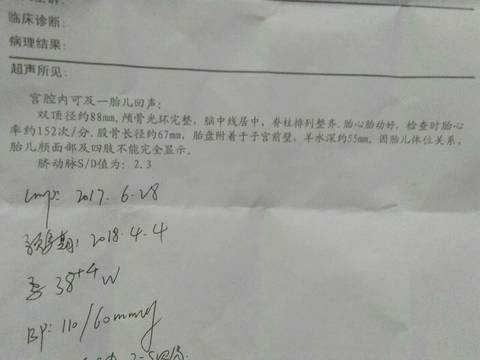 临床诊断:
病理结果:
超声所见:
宫腔内可及一胎儿回声:
双顶径约88mm,颅骨光环完整,脑中线居中,脊柱排列整齐.胎心胎动好,检查时胎心
率约152次/分.股骨长径约67mm,胎盘附着于子宫前壁,羊水深约55mm,因胎儿体位关系,
胎儿颜面部及四肢不能完全显示。
脐动脉S/D值为: 2.3
Lmp: 2017. 6-28
预产期: 2018.4.4
孕 38+4 W
BP: 110/60mmHg